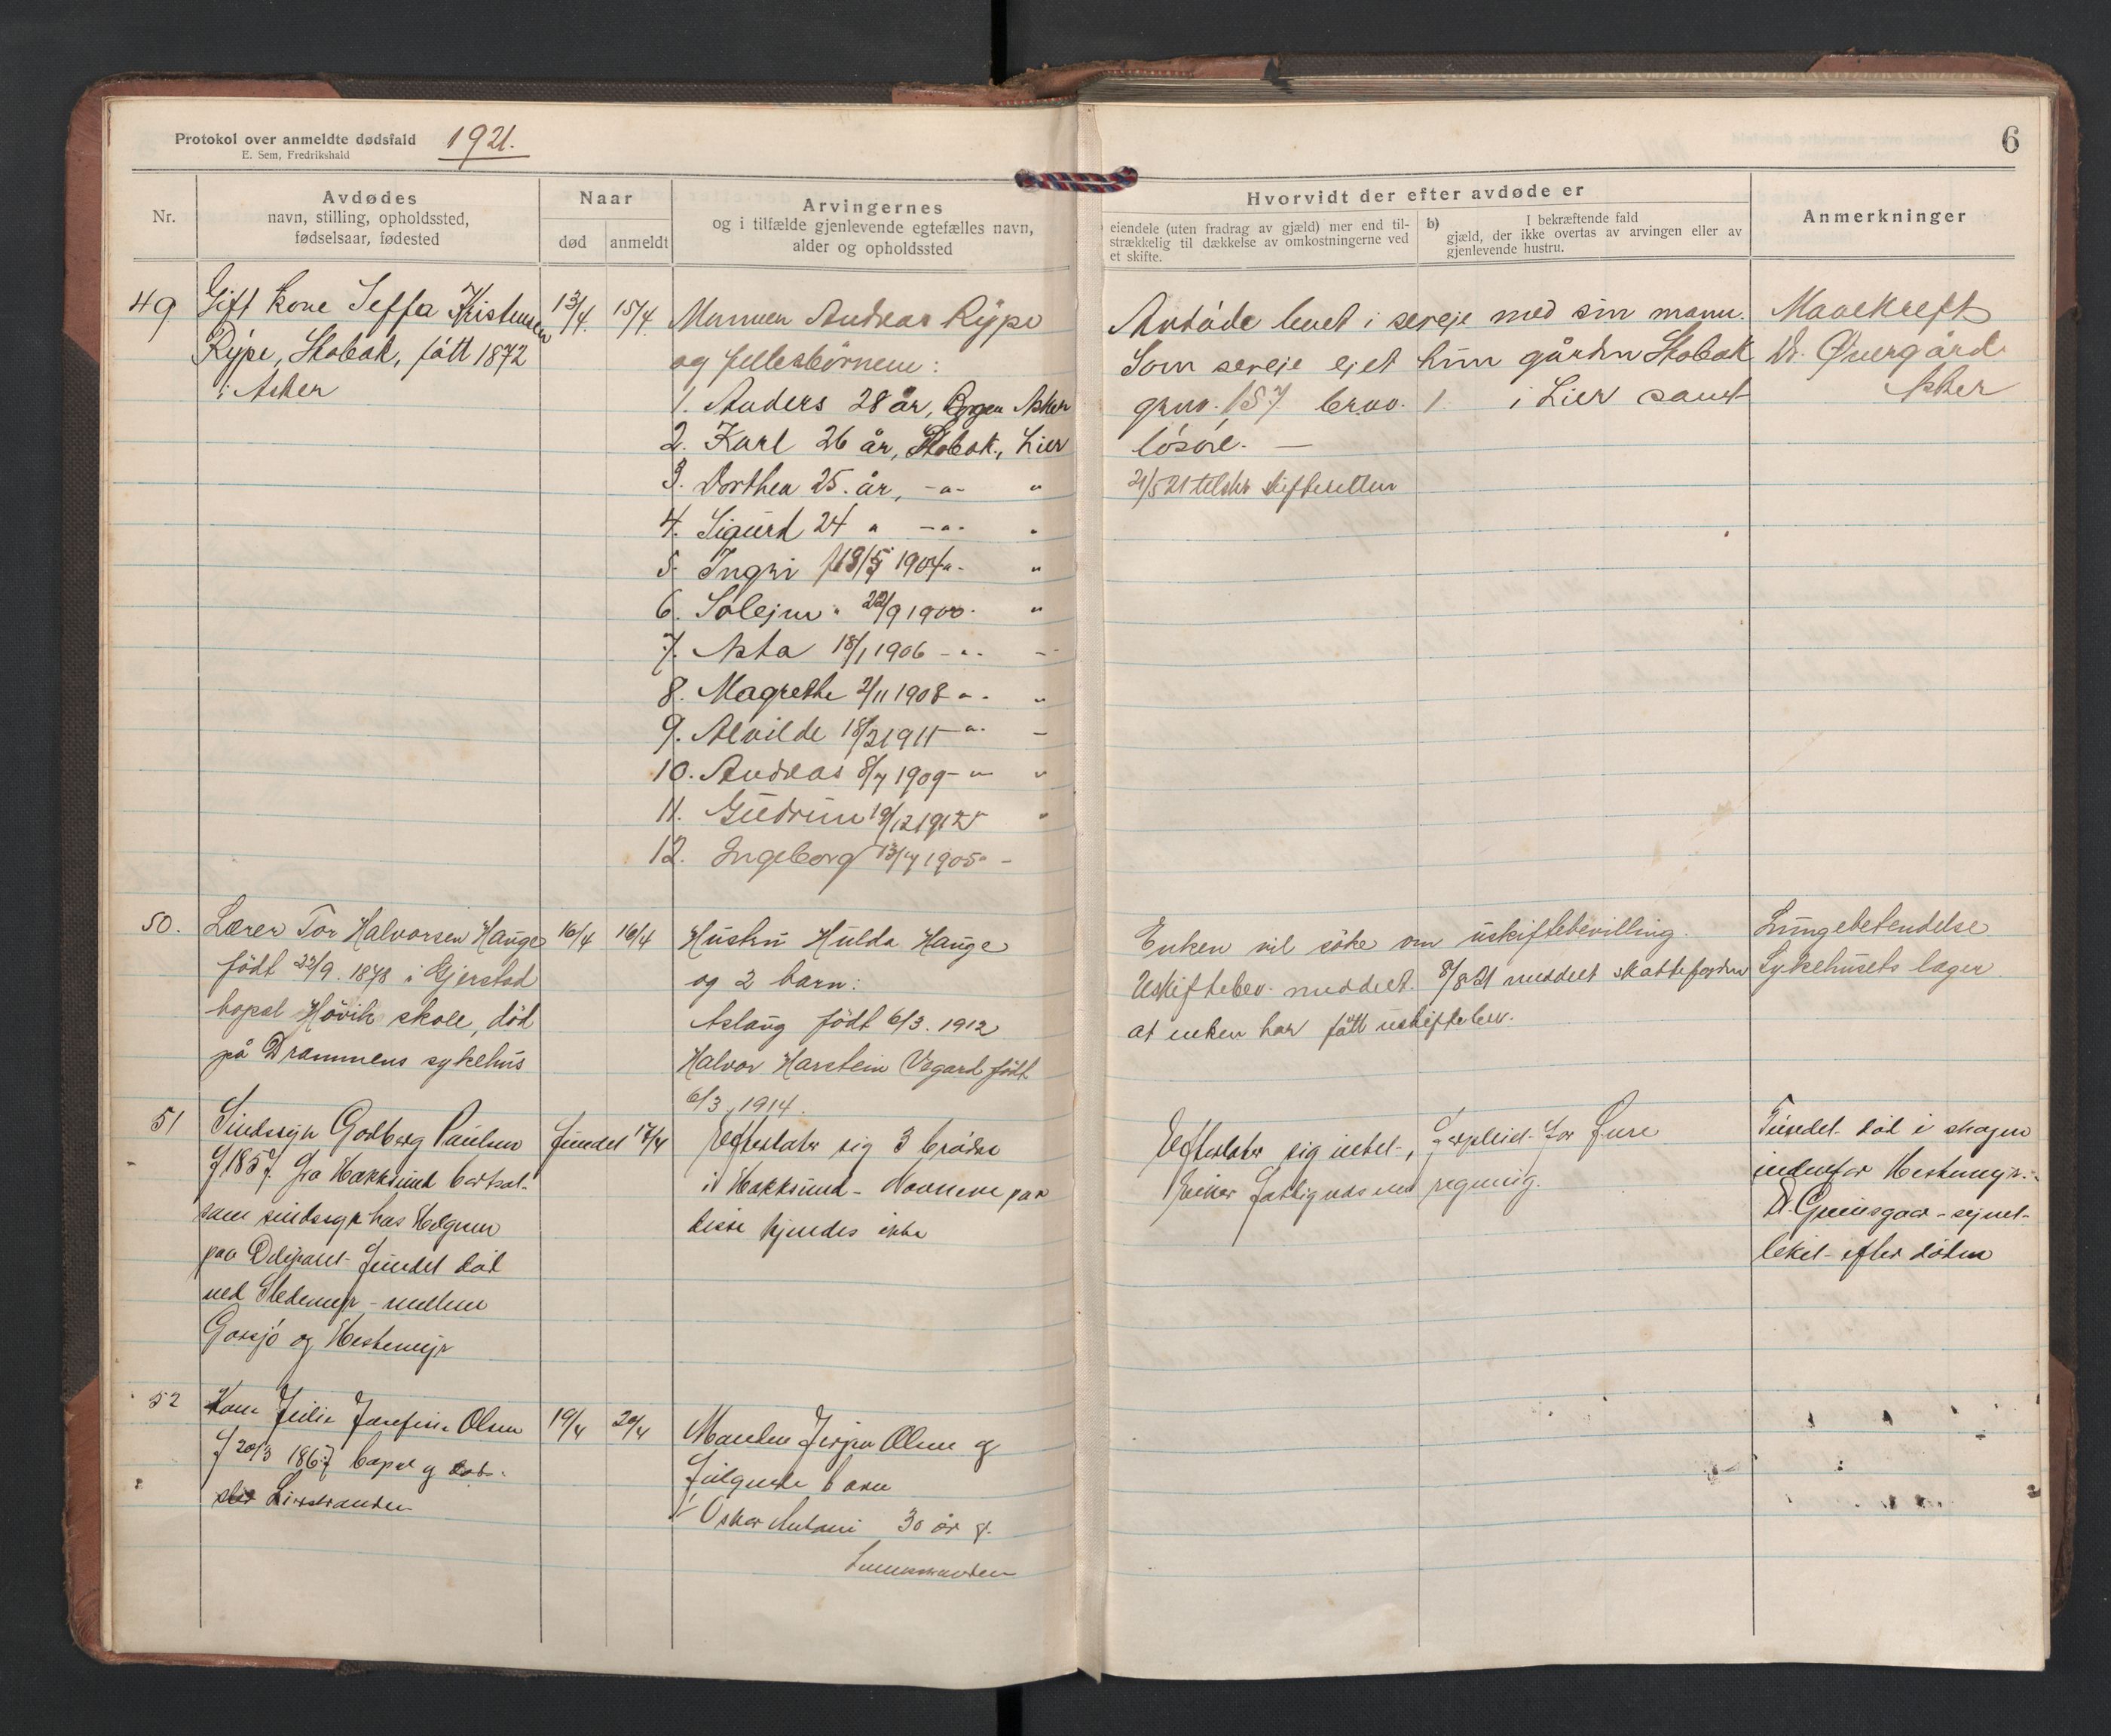 Protokol over anmeldte dødsfald 1921.
E. Sem, Fredrikshald
6
Nr.
Avdødes
navn, stilling, opholdssted,
fødselsaar, fødested
Naar
død
anmeldt
Arvingernes
og i tilfælde gjenlevende egtefælles navn,
alder og opholdssted
Hvorvidt der efter avdøde er
eiendele (uten fradrag av gjæld) mer end til-
strækkelig til dækkelse av omkostningerne ved
et skifte.
b) I bekræftende fald
gjæld, der ikke overtas av arvingen eller av
gjenlevende hustru.
Anmerkninger
49
Gift kone Seffa Kristensen
Rype, Stobak, fött 1872
i Asker
13/4
15/4
Mannen Andreas Rype
og fellesbörnene:
1. Anders 28 år, Asker
2. Karl 26 år, Stobak, Lier
3. Dorthea 25 år, -"- "
4. Sigurd 24 " -"- "
5. Ingri 1904 "
6. Solejm " 22/9 1900 "
7. Asta 18/1 1906 -"- -
8. Magrethe 2/11 1908 "- "
9. Alvilde 18/2 1911 -"- -
10. Andreas 8/7 1909 -"- "
11. Gudrun 19/12 1912 "
12. Ingeborg 13/4 1905 -
Avdöde levet i særeje med sin mann.
Som særeje ejet hun gården Stobak
grno. 157 brno. 1. i Lier samt
lösöre. —
21/5 21 tilskr skifteretten
Mavekreft
Dr. Övergård
Asker
50.
Lærer Tor Halvorsen Hauge
födt 22/9. 1878 i Gjerstad
bopel Hövik skole, död
på Drammens sykehus
16/4
16/4
Hustru Hulda Hauge
og 2 barn:
Aslaug födt 6/3. 1912
Halvor Harstein Vegard födt
6/3. 1914.
Enken vil söke om uskiftebevilling.
Uskiftebev. meddelt. 8/8 21 meddelt skattefogden
at enken har fått uskiftebev.
Lungebetendelse
Sykehusets læger
51
Sindssyk Godberg Paulsen
f 1857. fra Hakksund bortsat
som sindssyk hos Helgesen
paa fundet död
ved Stedemyr - mellem
Gorsjö og Hestemyr
fundet 17/4
Efterlater sig 3 brödre
i Hakksund - Navnene paa
disse kjendes ikke
Efterlater sig intet, forpleiet for Övre
Eiker fattigvæsens regning.
Fundet död i skogen
indenfor Hestemyr.
Dr. Grimsgaar - synet
liket efter döden
52
Kone Julie Josefine Olsen
f 20/3 1867 bopæl og döds-
sted Lierstranden
19/4
20/4
Manden Jörgen Olsen og
fölgende barn
1 Oskar Antoni 30 år g.